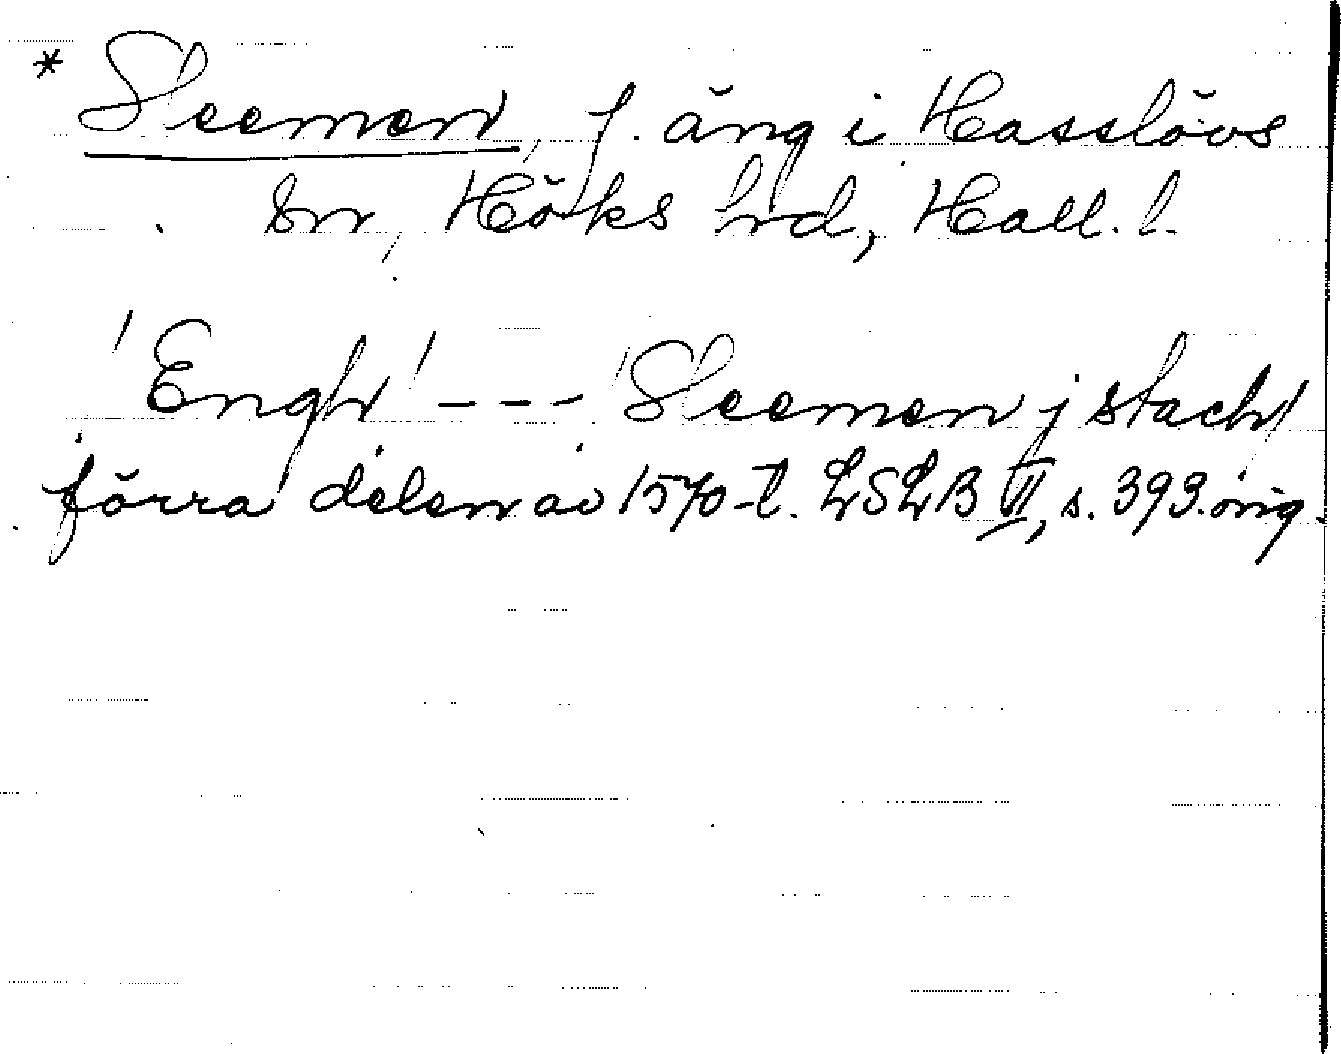 * Sleemen, f. äng i Hasslövs
sn, Höks hrd, Hall. l.
'Engh' --- 'Sleemen j stach'
förra delen av 1570-t. LSLB VI, s. 393. orig.